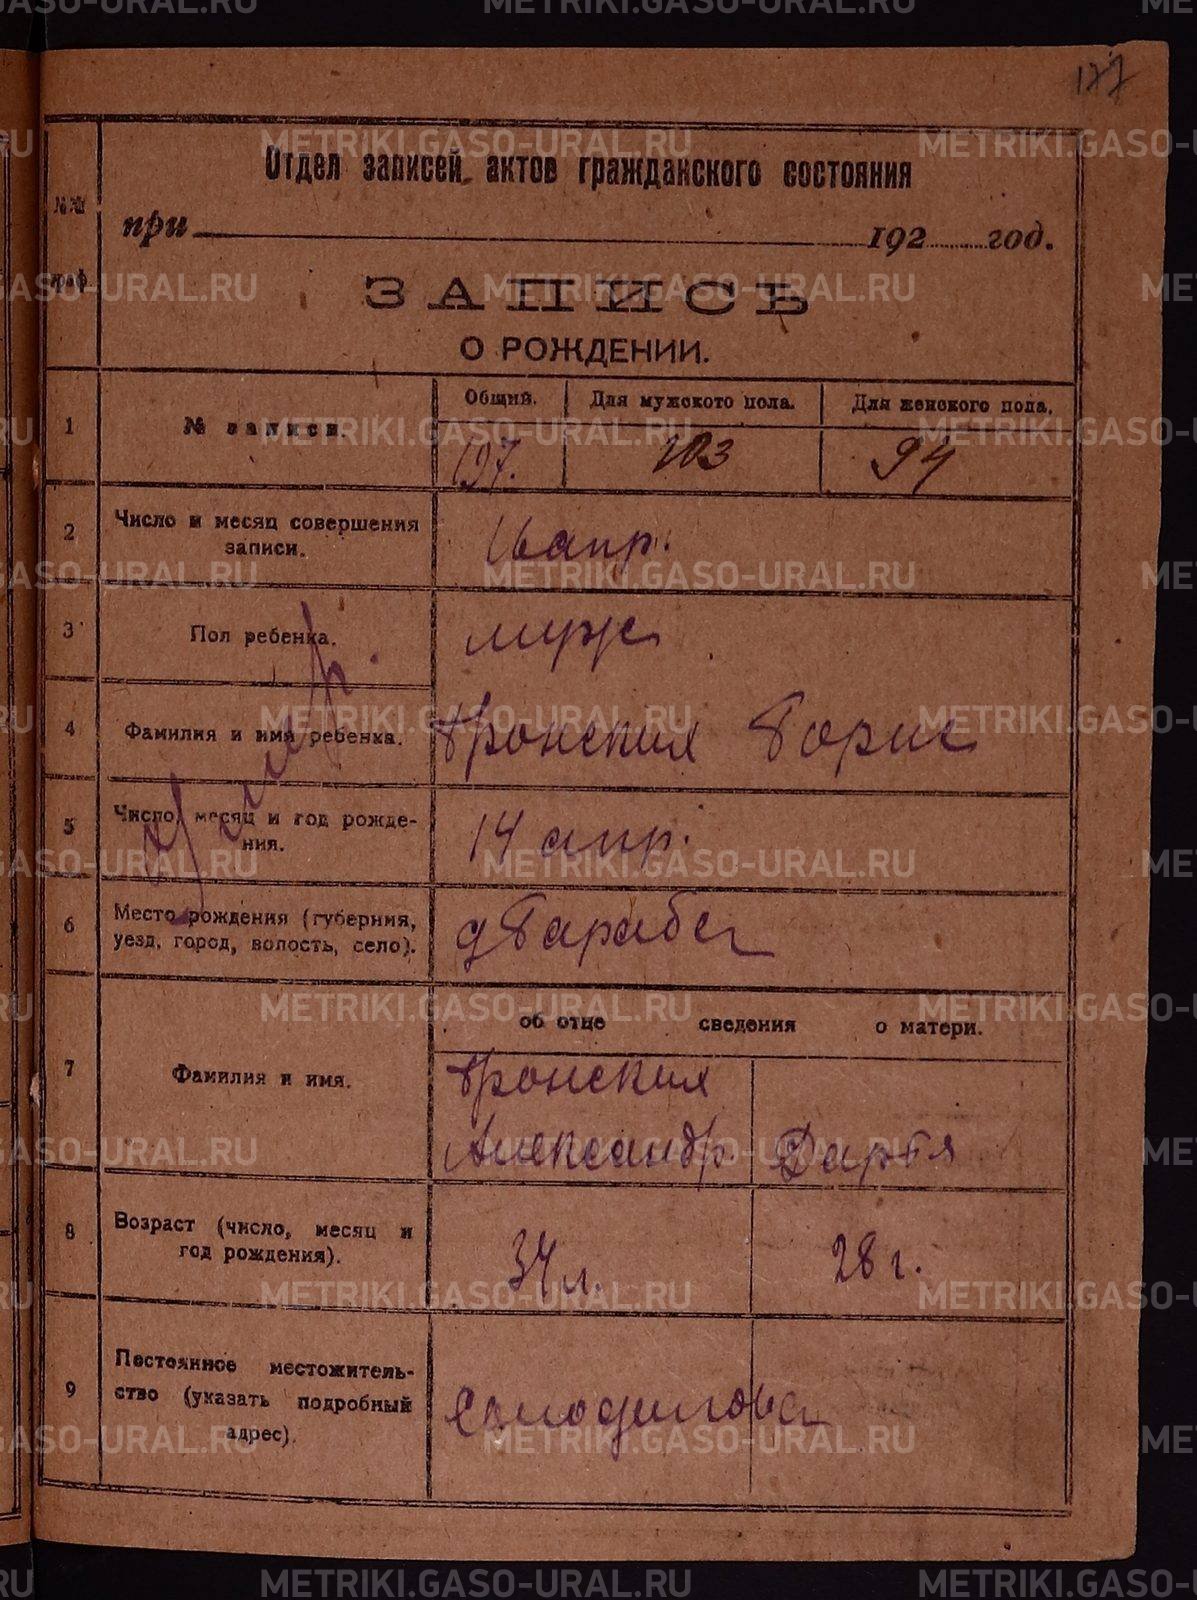 METRIKI.GASO-URAL.RU
177
Отдел записей актов гражданского состояния
№№ граф
при 192 год.
ЗАПИСЬ
О РОЖДЕНИИ.
1 № записи. Общий. Для мужского пола. Для женского пола.
197. 103 94
2 Число и месяц совершения записи. 16 апр.
3 Пол ребенка. муж
4 Фамилия и имя ребенка. Борис
5 Число, месяц и год рождения. 14 апр.
умер.
6 Место рождения (губерния, уезд, город, волость, село). д Бараба
об отце сведения о матери.
7 Фамилия и имя.
Александр Дарья
8 Возраст (число, месяц и год рождения). 34 л. 28 г.
9 Постоянное местожительство (указать подробный адрес).